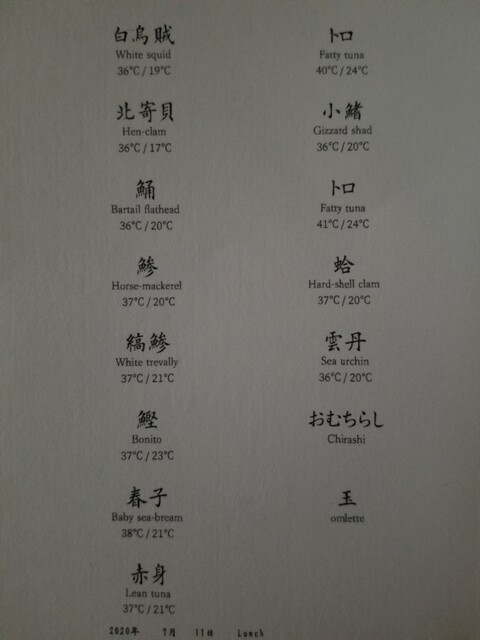 白烏賊
White squid
36℃ / 19℃
北寄貝
Hen-clam
36℃ / 17℃
鯒
Bartail flathead
36℃ / 20℃
鯵
Horse-mackerel
37℃ / 20℃
縞鯵
White trevally
37℃ / 21℃
鰹
Bonito
37℃ / 23℃
春子
Baby sea-bream
38℃ / 21℃
赤身
Lean tuna
37℃ / 21℃
トロ
Fatty tuna
40℃ / 24℃
小鰭
Gizzard shad
36℃ / 20℃
トロ
Fatty tuna
41℃ / 24℃
蛤
Hard-shell clam
37℃ / 20℃
雲丹
Sea urchin
36℃ / 20℃
おむちらし
Chirashi
玉
omlette
2020年 7月 11日 Lunch